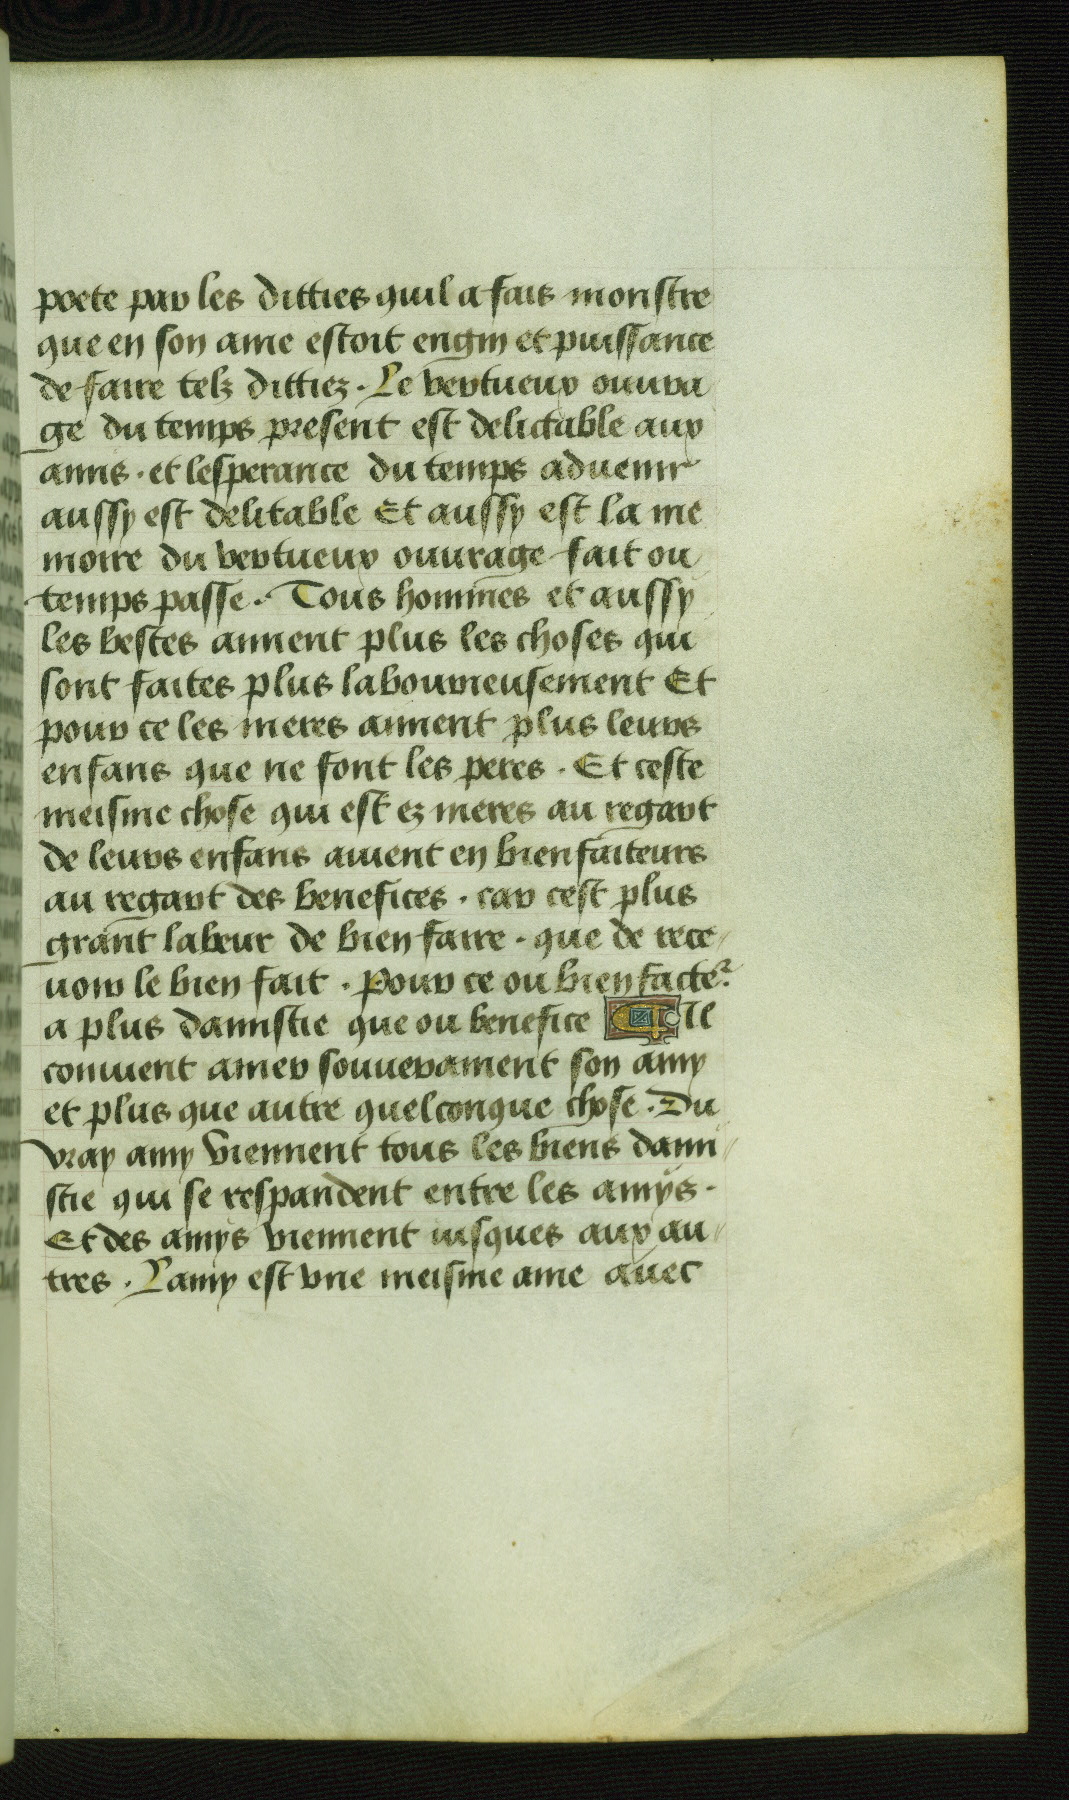 poete par les ditties quil a fais monstre
que en son ame estoit engin et puissance
de faire telz dittiez. Le vertueux ouura
ge du temps present est delictable aux
amis. et lesperance du temps aduenir
aussy est delitable Et aussy est la me
moire du vertueux ouurage fait ou
temps passe. Tous hommes et aussy
les bestes aiment plus les choses qui
sont faites plus labourieusement Et
pour ce les meres aiment plus leurs
enfans que ne font les peres. Et ceste
meisme chose qui est ez meres au regart
de leurs enfans auient en bienfaiteurs
au regart des benefices. car cest plus
grant labeur de bien faire. que de rece
uoir le bien fait. Pour ce ou bien facte
a plus damistie que ou benefice Il
conuient amer souuerainement son amy
et plus que autre quelconque chose. Du
vray amy viennent tous les biens dami
stie qui se respandent entre les amys.
Et des amys viennent iusques aux au
tres. Lamy est vne meisme ame auec